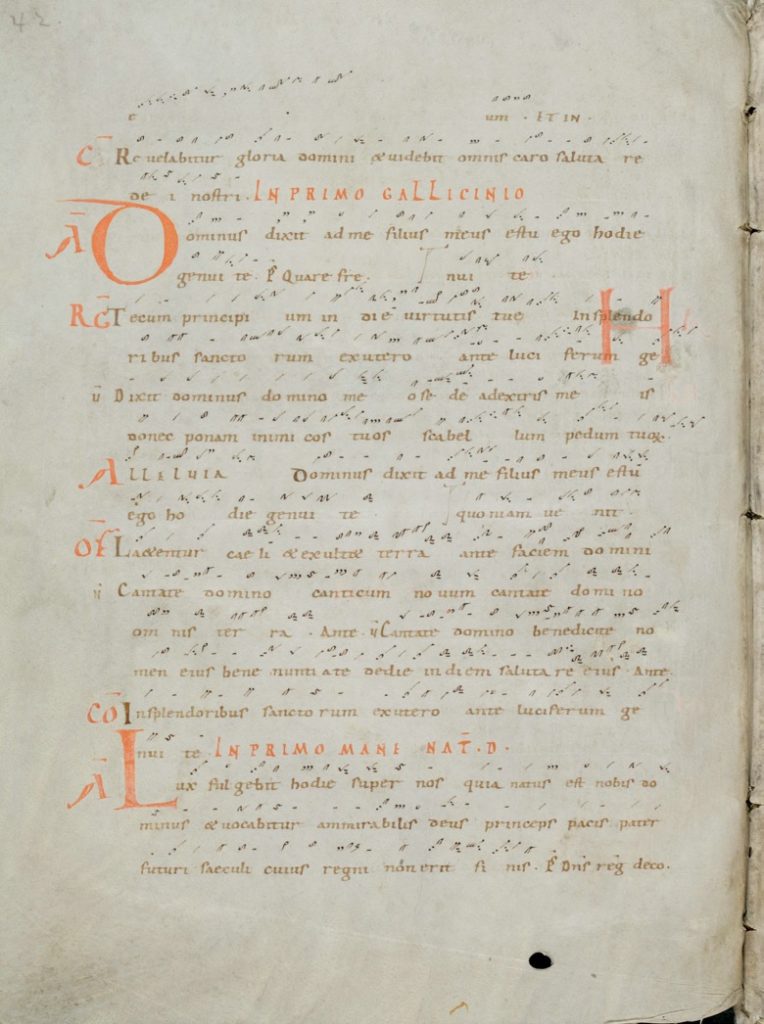 42
e um . ET IN .
C̄ Revelabitur gloria domini & videbit omnis caro saluta re
de i nostri . IN PRIMO GALLICINIO
Ā Dominus dixit ad me filius meus es tu ego hodie
genui te . Quare fre . nui te
RḠ Tecum principi um in die virtutis tuę In splendo
ribus sancto rum ex utero ante luci ferum ge
Dixit dominus domino me o se de a dextris me is
donec ponam inimi cos tuos scabel lum pedum tuoꝝ .
ALLELUIA Dominus dixit ad me filius meus es tu
ego ho die genui te quoniam ve nit .
OF̄ Laetentur cae li & exult& terra ante faciem domini
Cantate domino canticum novum cantate domino
om nis ter ra . Ante . Cantate domino benedicite no
men eius bene nunti ate de die in diem saluta re eius . Ante .
CŌ In splendoribus sancto rum ex utero ante luciferum ge
nui te . IN PRIMO MANE NAT̄ . D .
Ā Lux fulgebit hodie super nos quia natus est nobis do
minus & vocabitur ammirabilis deus princeps pacis pater
futuri saeculi cuius regni non erit fi nis . Dn̄s reg̅ deco .